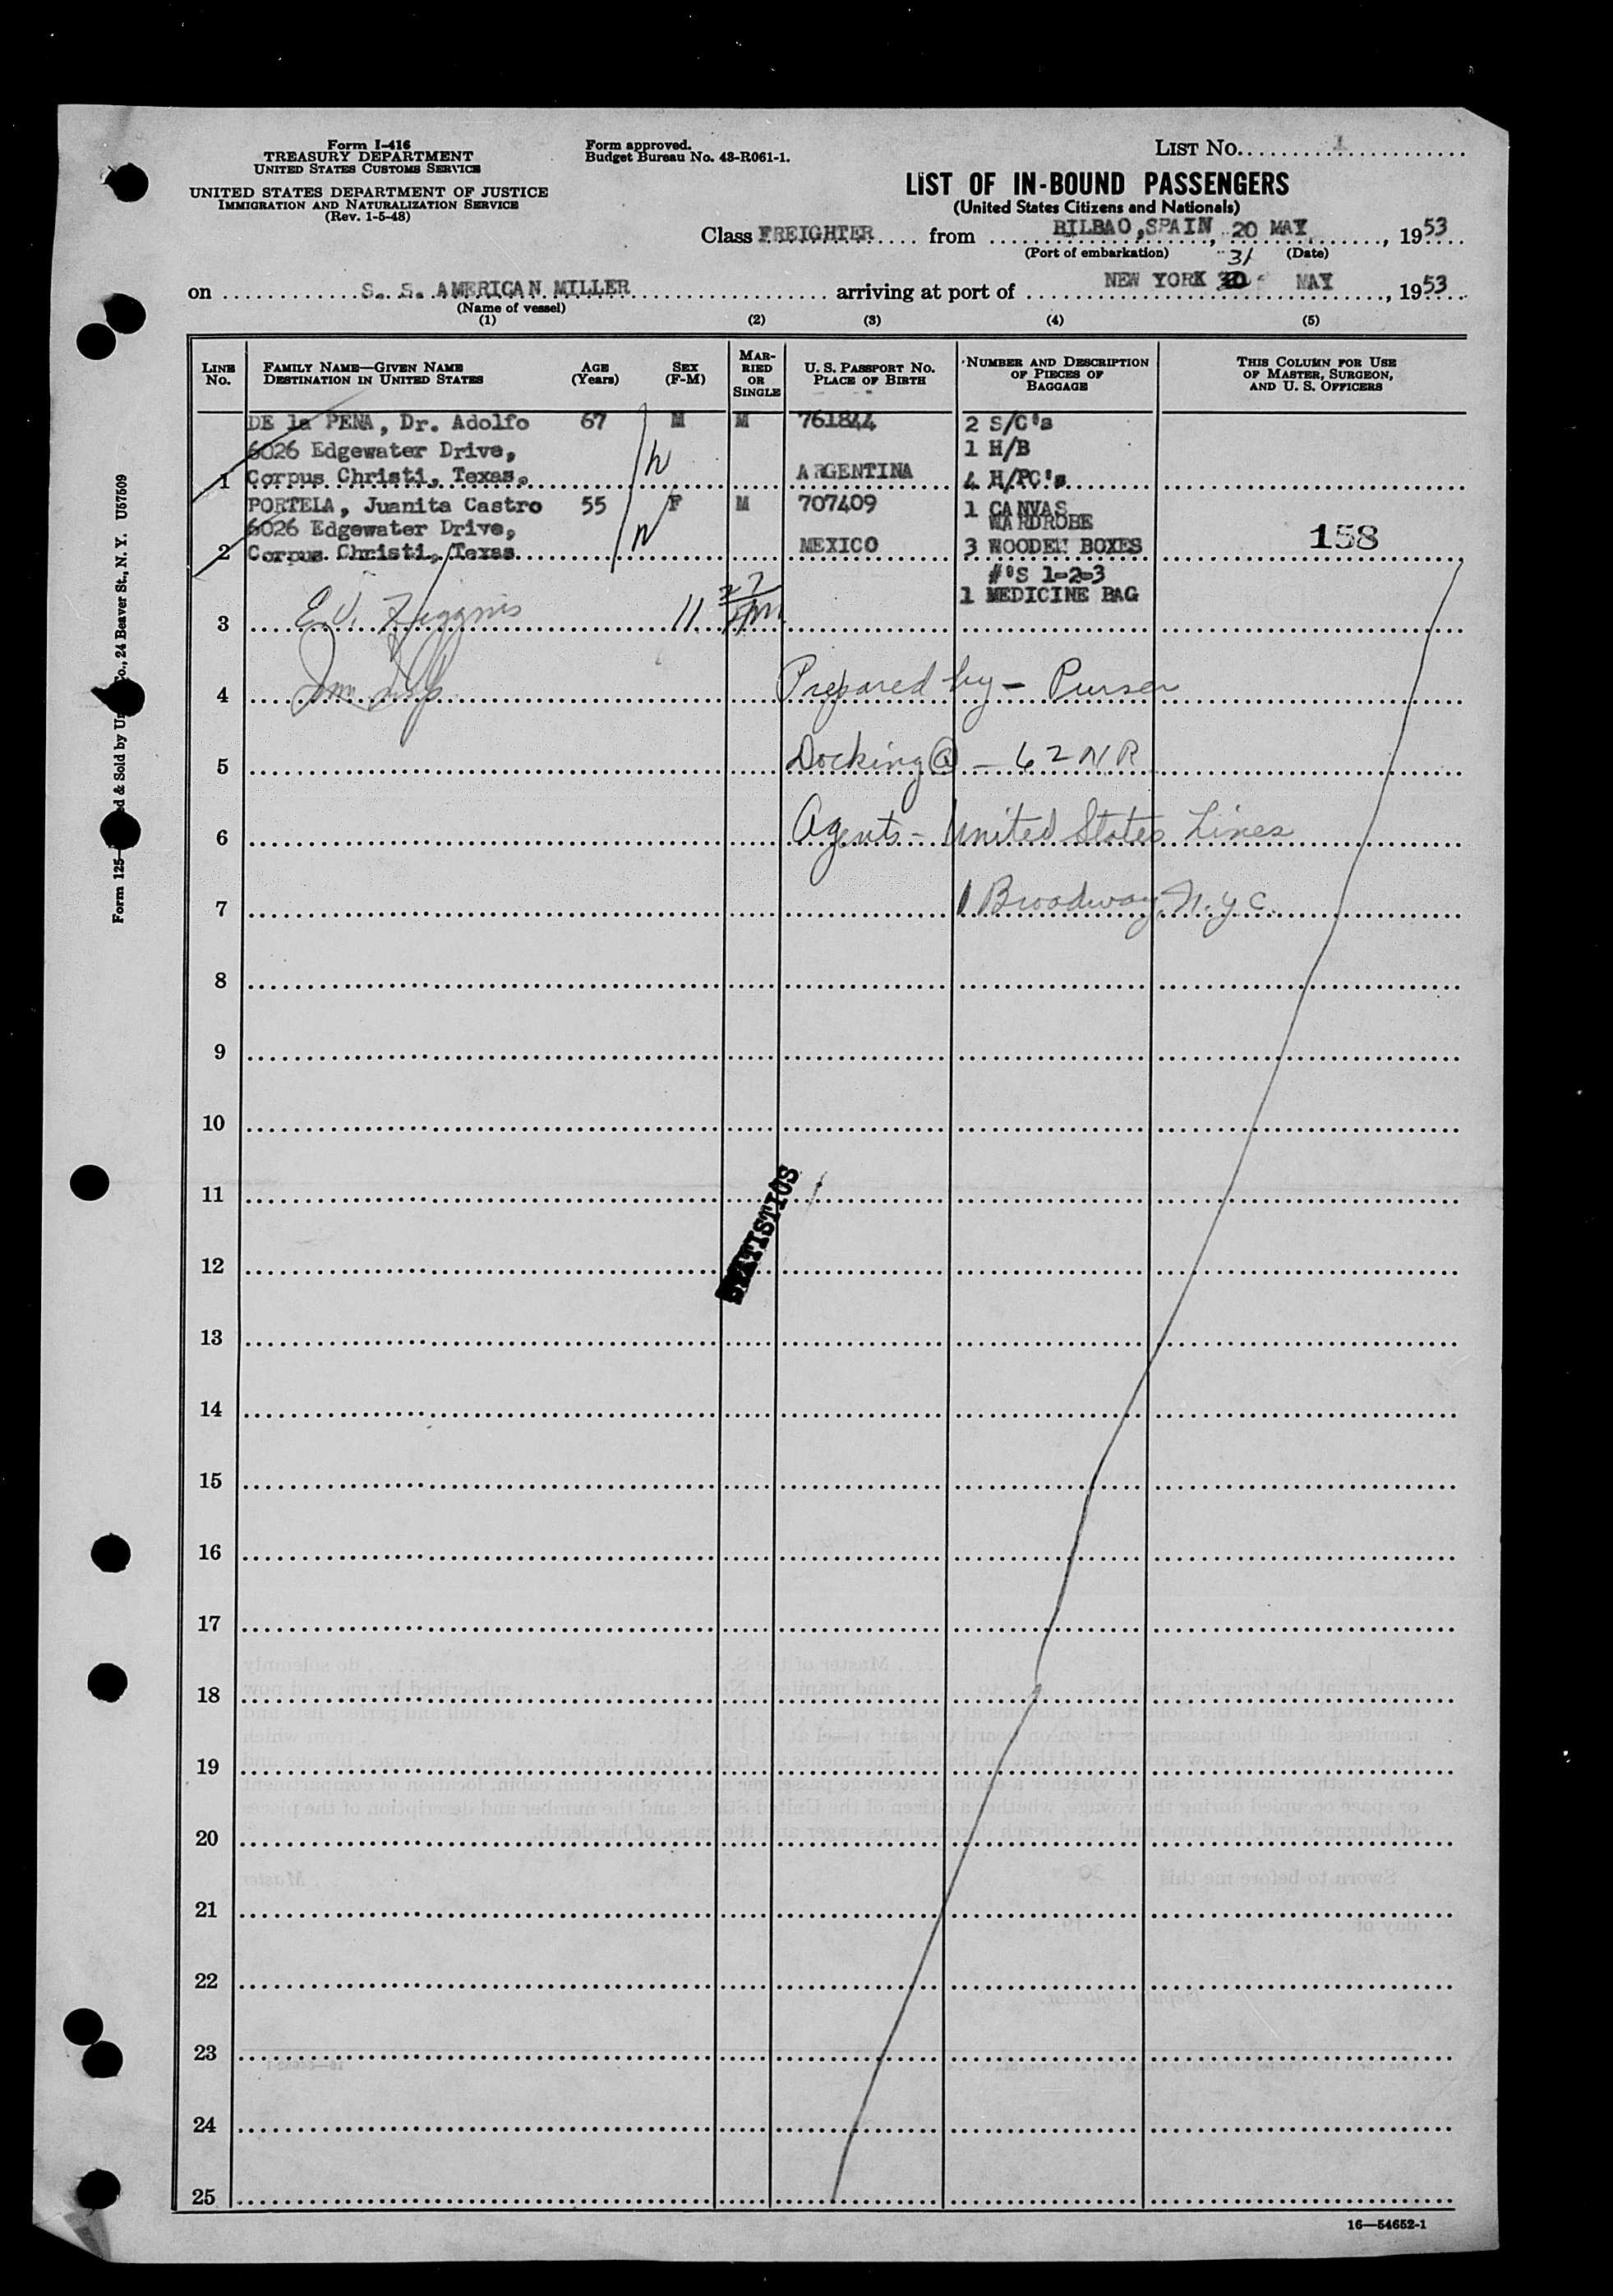 Form I-416
TREASURY DEPARTMENT
UNITED STATES CUSTOMS SERVICE
UNITED STATES DEPARTMENT OF JUSTICE
IMMIGRATION AND NATURALIZATION SERVICE
(Rev. 1-5-48)
Form approved.
Budget Bureau No. 43-R061-1.
LIST No. 1
LIST OF IN-BOUND PASSENGERS
(United States Citizens and Nationals)
Class FREIGHTER from BILBAO, SPAIN, 20 MAY, 1953
(Port of embarkation) (Date)
31
on S. S. AMERICAN MILLER arriving at port of NEW YORK 30 MAY, 1953
(Name of vessel)
(1) (2) (3) (4) (5)
LINE No.
FAMILY NAME—GIVEN NAME
DESTINATION IN UNITED STATES
AGE (Years)
SEX (F-M)
MARRIED OR SINGLE
U. S. PASSPORT No.
PLACE OF BIRTH
NUMBER AND DESCRIPTION OF PIECES OF BAGGAGE
THIS COLUMN FOR USE OF MASTER, SURGEON, AND U. S. OFFICERS
DE la PENA, Dr. Adolfo 67 M M 761844 2 S/C's
6026 Edgewater Drive, 1 H/B
1 Corpus Christi, Texas. ARGENTINA 4 H/PC's
PORTELA, Juanita Castro 55 F M 707409 1 CANVAS
WARDROBE
6026 Edgewater Drive,
2 Corpus Christi, Texas MEXICO 3 WOODEN BOXES 158
#'S 1-2-3
1 MEDICINE BAG
3
4 Prepared by - Purser
5 Docking @ - 62 N R
6 Agents - United States Lines
7 1 Broadway, N.Y.C.
8
9
10
11
STATISTICS
12
13
14
15
16
17
18
19
20
21
22
23
24
25
16—54652-1